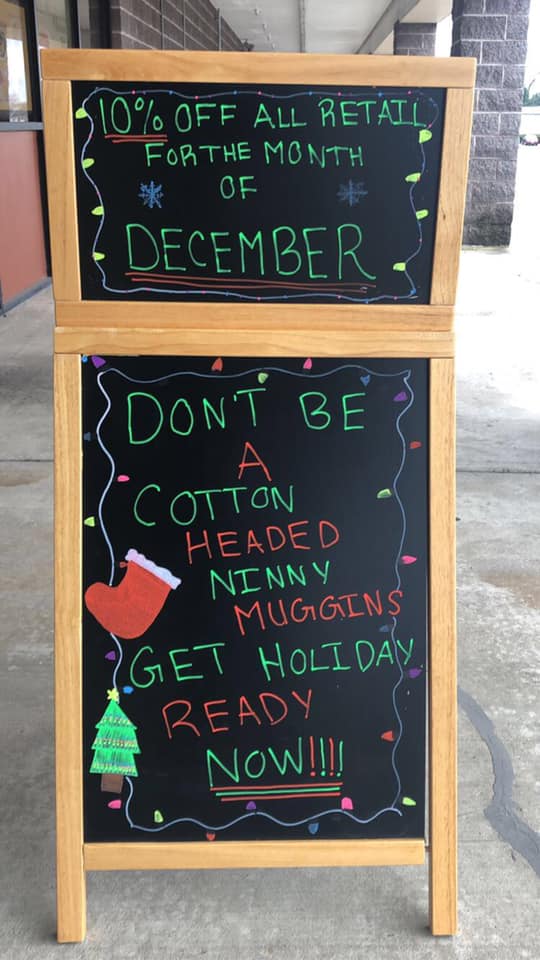 10% OFF ALL RETAIL
FOR THE MONTH
OF
DECEMBER
DON'T BE
A
COTTON
HEADED
NINNY
MUGGINS
GET HOLIDAY
READY
NOW!!!!